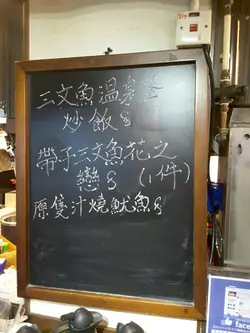 三文魚溫泉蛋
炒飯8
帶子三文魚花之
戀8 (1件)
原隻汁燒魷魚8